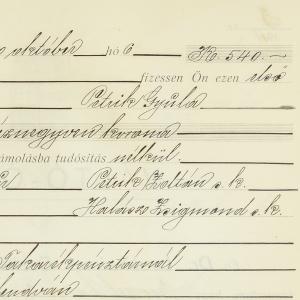 október hó 6 K. 540.—
fizessen Ön ezen első
Petrik Gyula
negyven korona
számolásba tudósítás nélkül.
Petrik Zoltán s. k.
Halász Zsigmond s. k.
Takarékpénztárnál
lendván